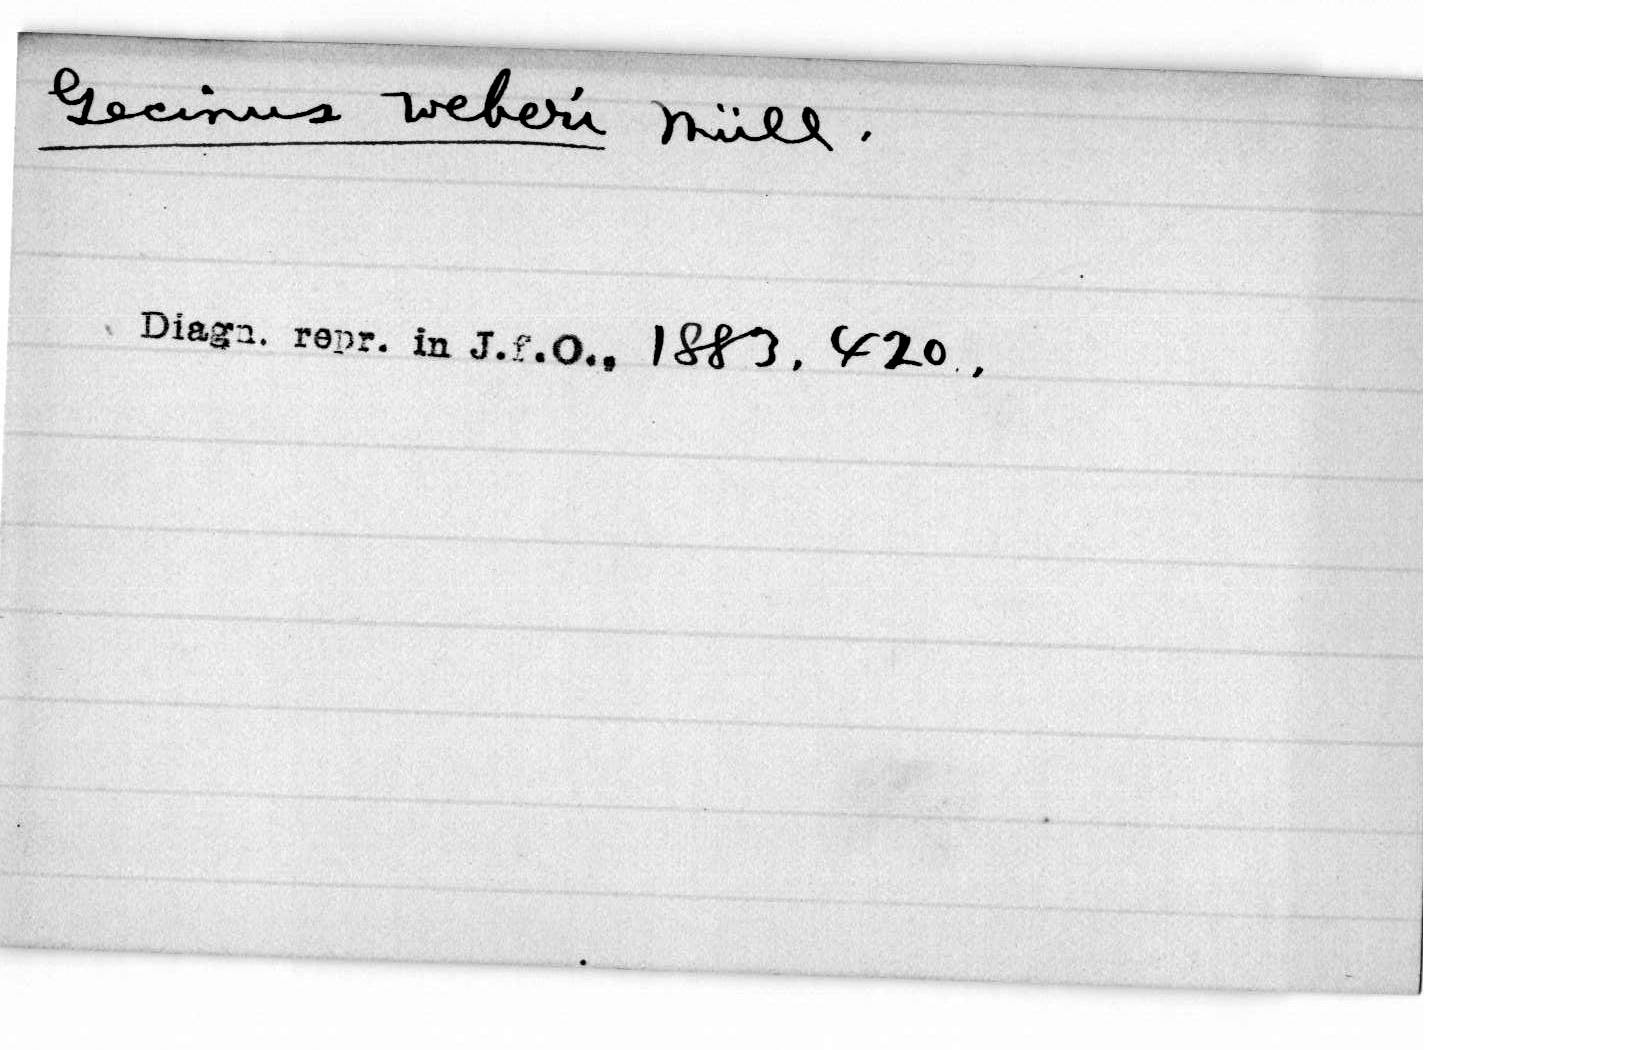 Gecinus weberi Müll.
Diagn. repr. in J.f.O., 1883, 420.,